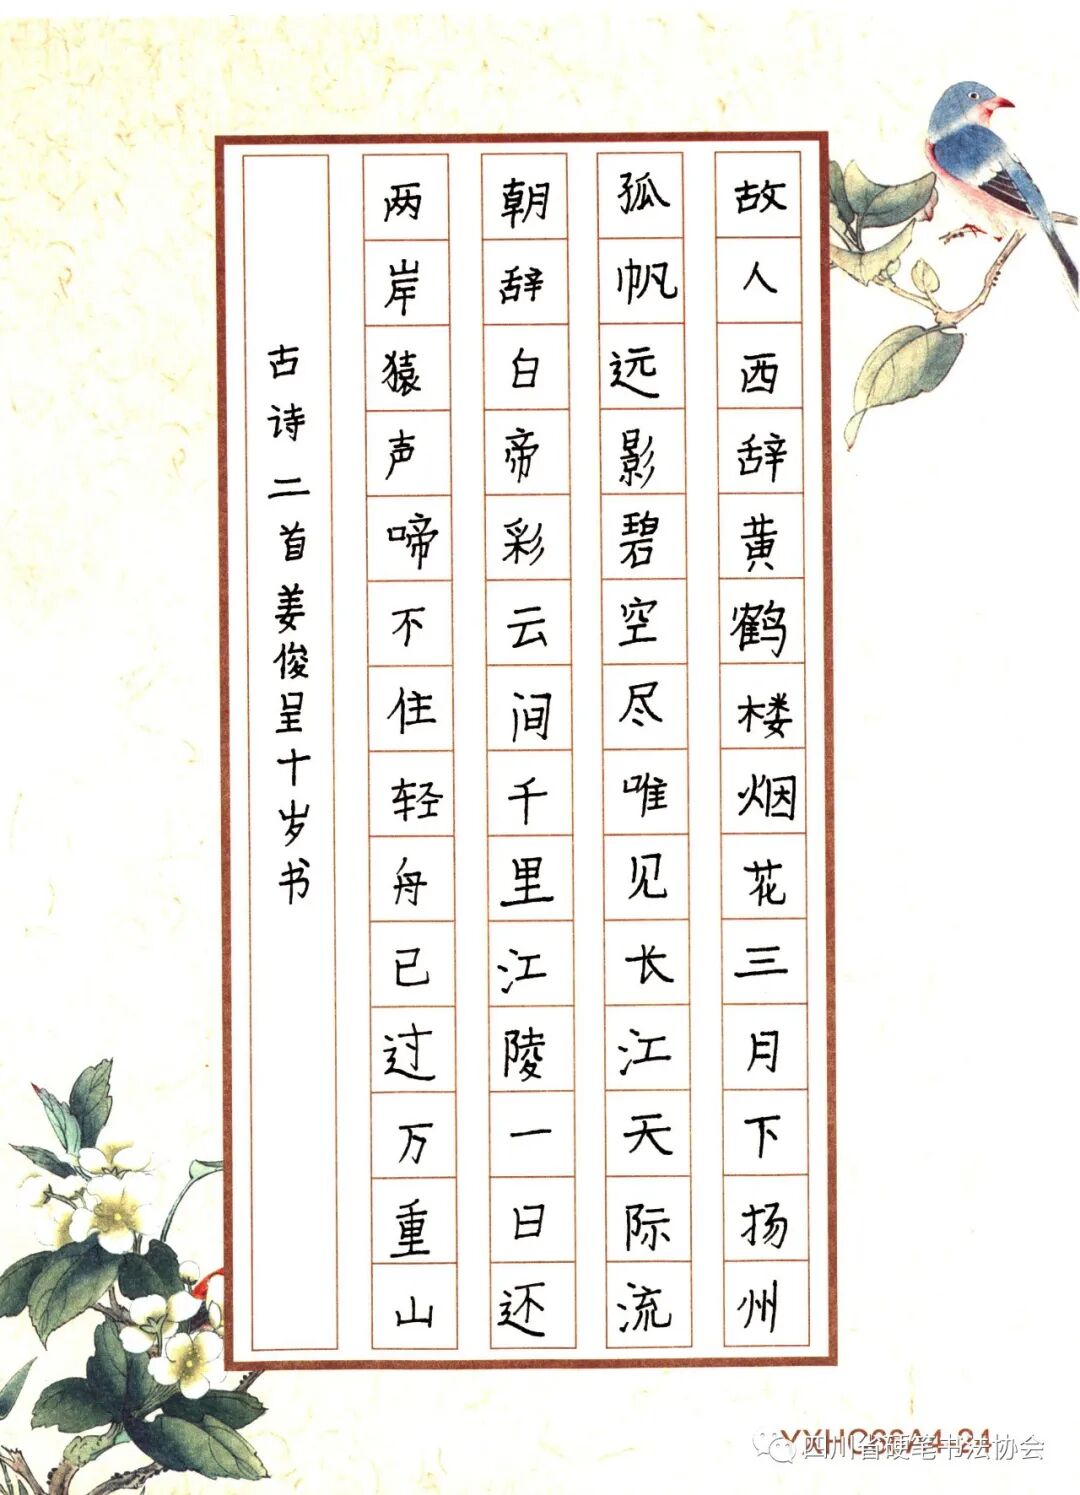 故人西辞黄鹤楼烟花三月下扬州
孤帆远影碧空尽唯见长江天际流
朝辞白帝彩云间千里江陵一日还
两岸猿声啼不住轻舟已过万重山
古诗二首姜俊呈十岁书
四川省硬笔书法协会